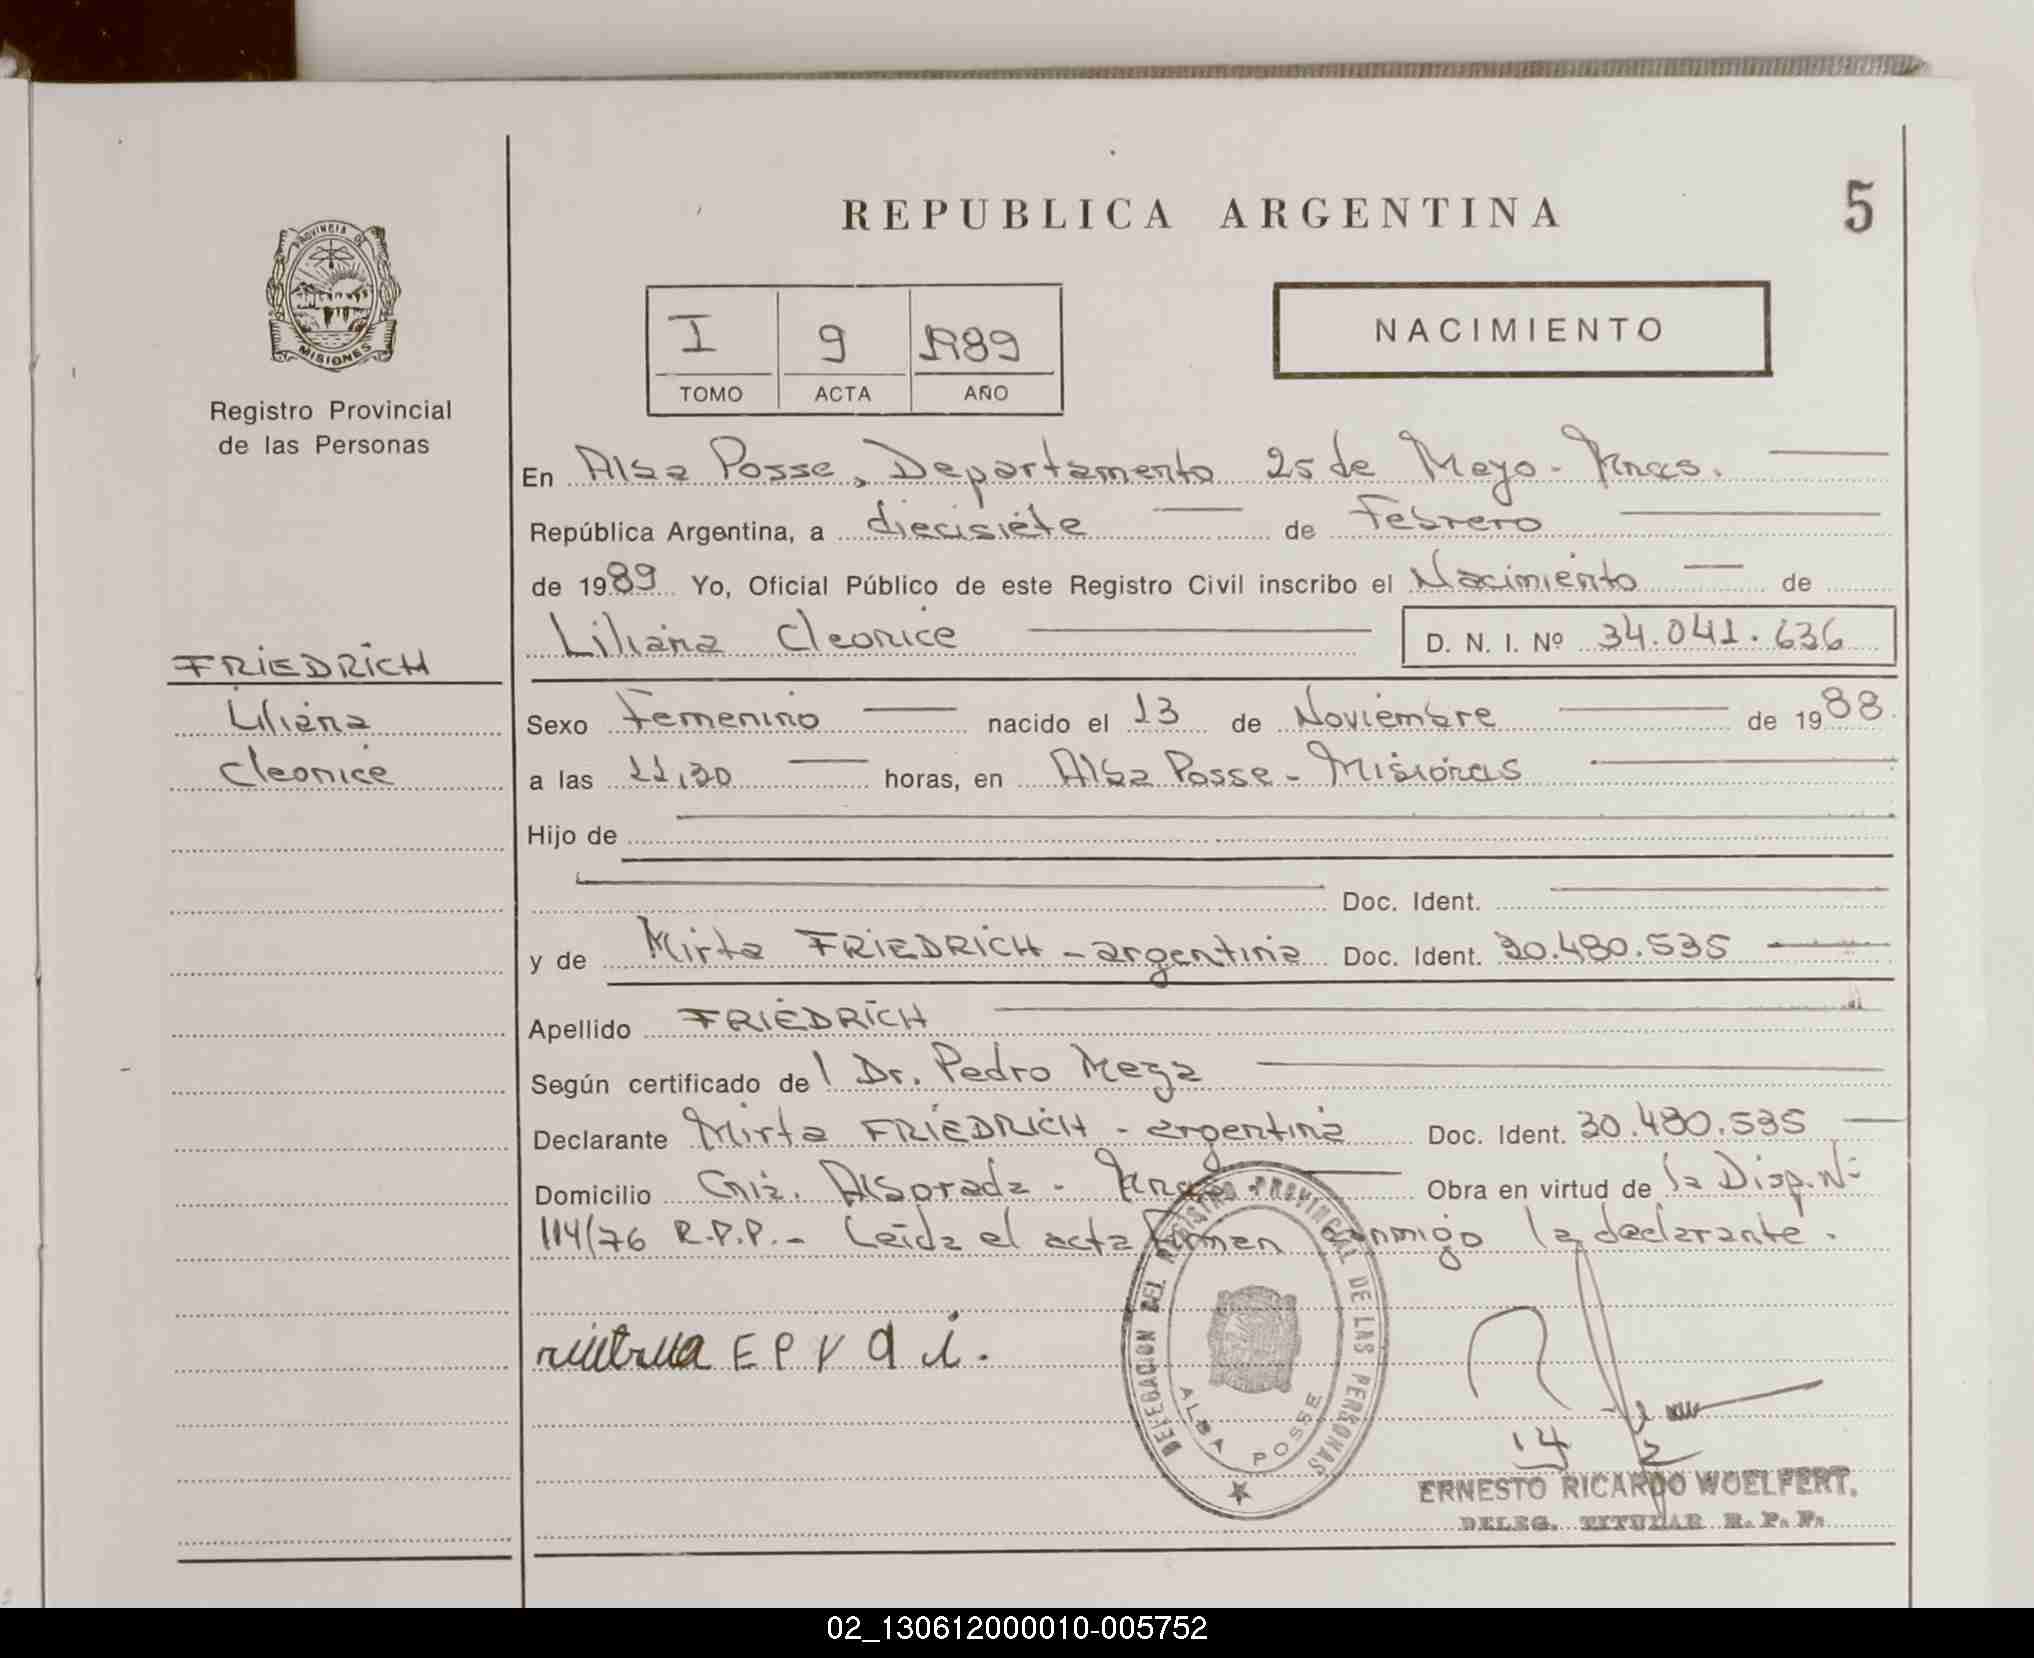 REPUBLICA ARGENTINA
5
PROVINCIA DE
MISIONES
Registro Provincial
de las Personas
I 9 1989
TOMO ACTA AÑO
NACIMIENTO
En Alba Posse, Departamento 25 de Mayo - Mnes.
República Argentina, a diecisiete de Febrero
de 1989 Yo, Oficial Público de este Registro Civil inscribo el Nacimiento de
Liliana Cleonice D. N. I. Nº 34.041.636
FRIEDRICH
Liliana
Cleonice
Sexo Femenino nacido el 13 de Noviembre de 1988
a las 11,30 horas, en Alba Posse - Misiones
Hijo de
Doc. Ident.
y de Mirta FRIEDRICH - argentina Doc. Ident. 30.480.535
Apellido FRIEDRICH
Según certificado del Dr. Pedro Meza
Declarante Mirta FRIEDRICH - argentina Doc. Ident. 30.480.535
Domicilio Cnia. Alborada - Mnes. Obra en virtud de la Disp. Nº
114/76 R.P.P. - Leida el acta firman conmigo la declarante.
DELEGACION DEL REGISTRO PROVINCIAL DE LAS PERSONAS
ALBA POSSE
ERNESTO RICARDO WOELFERT.
DELEG. TITULAR R. P. P.
02_130612000010-005752